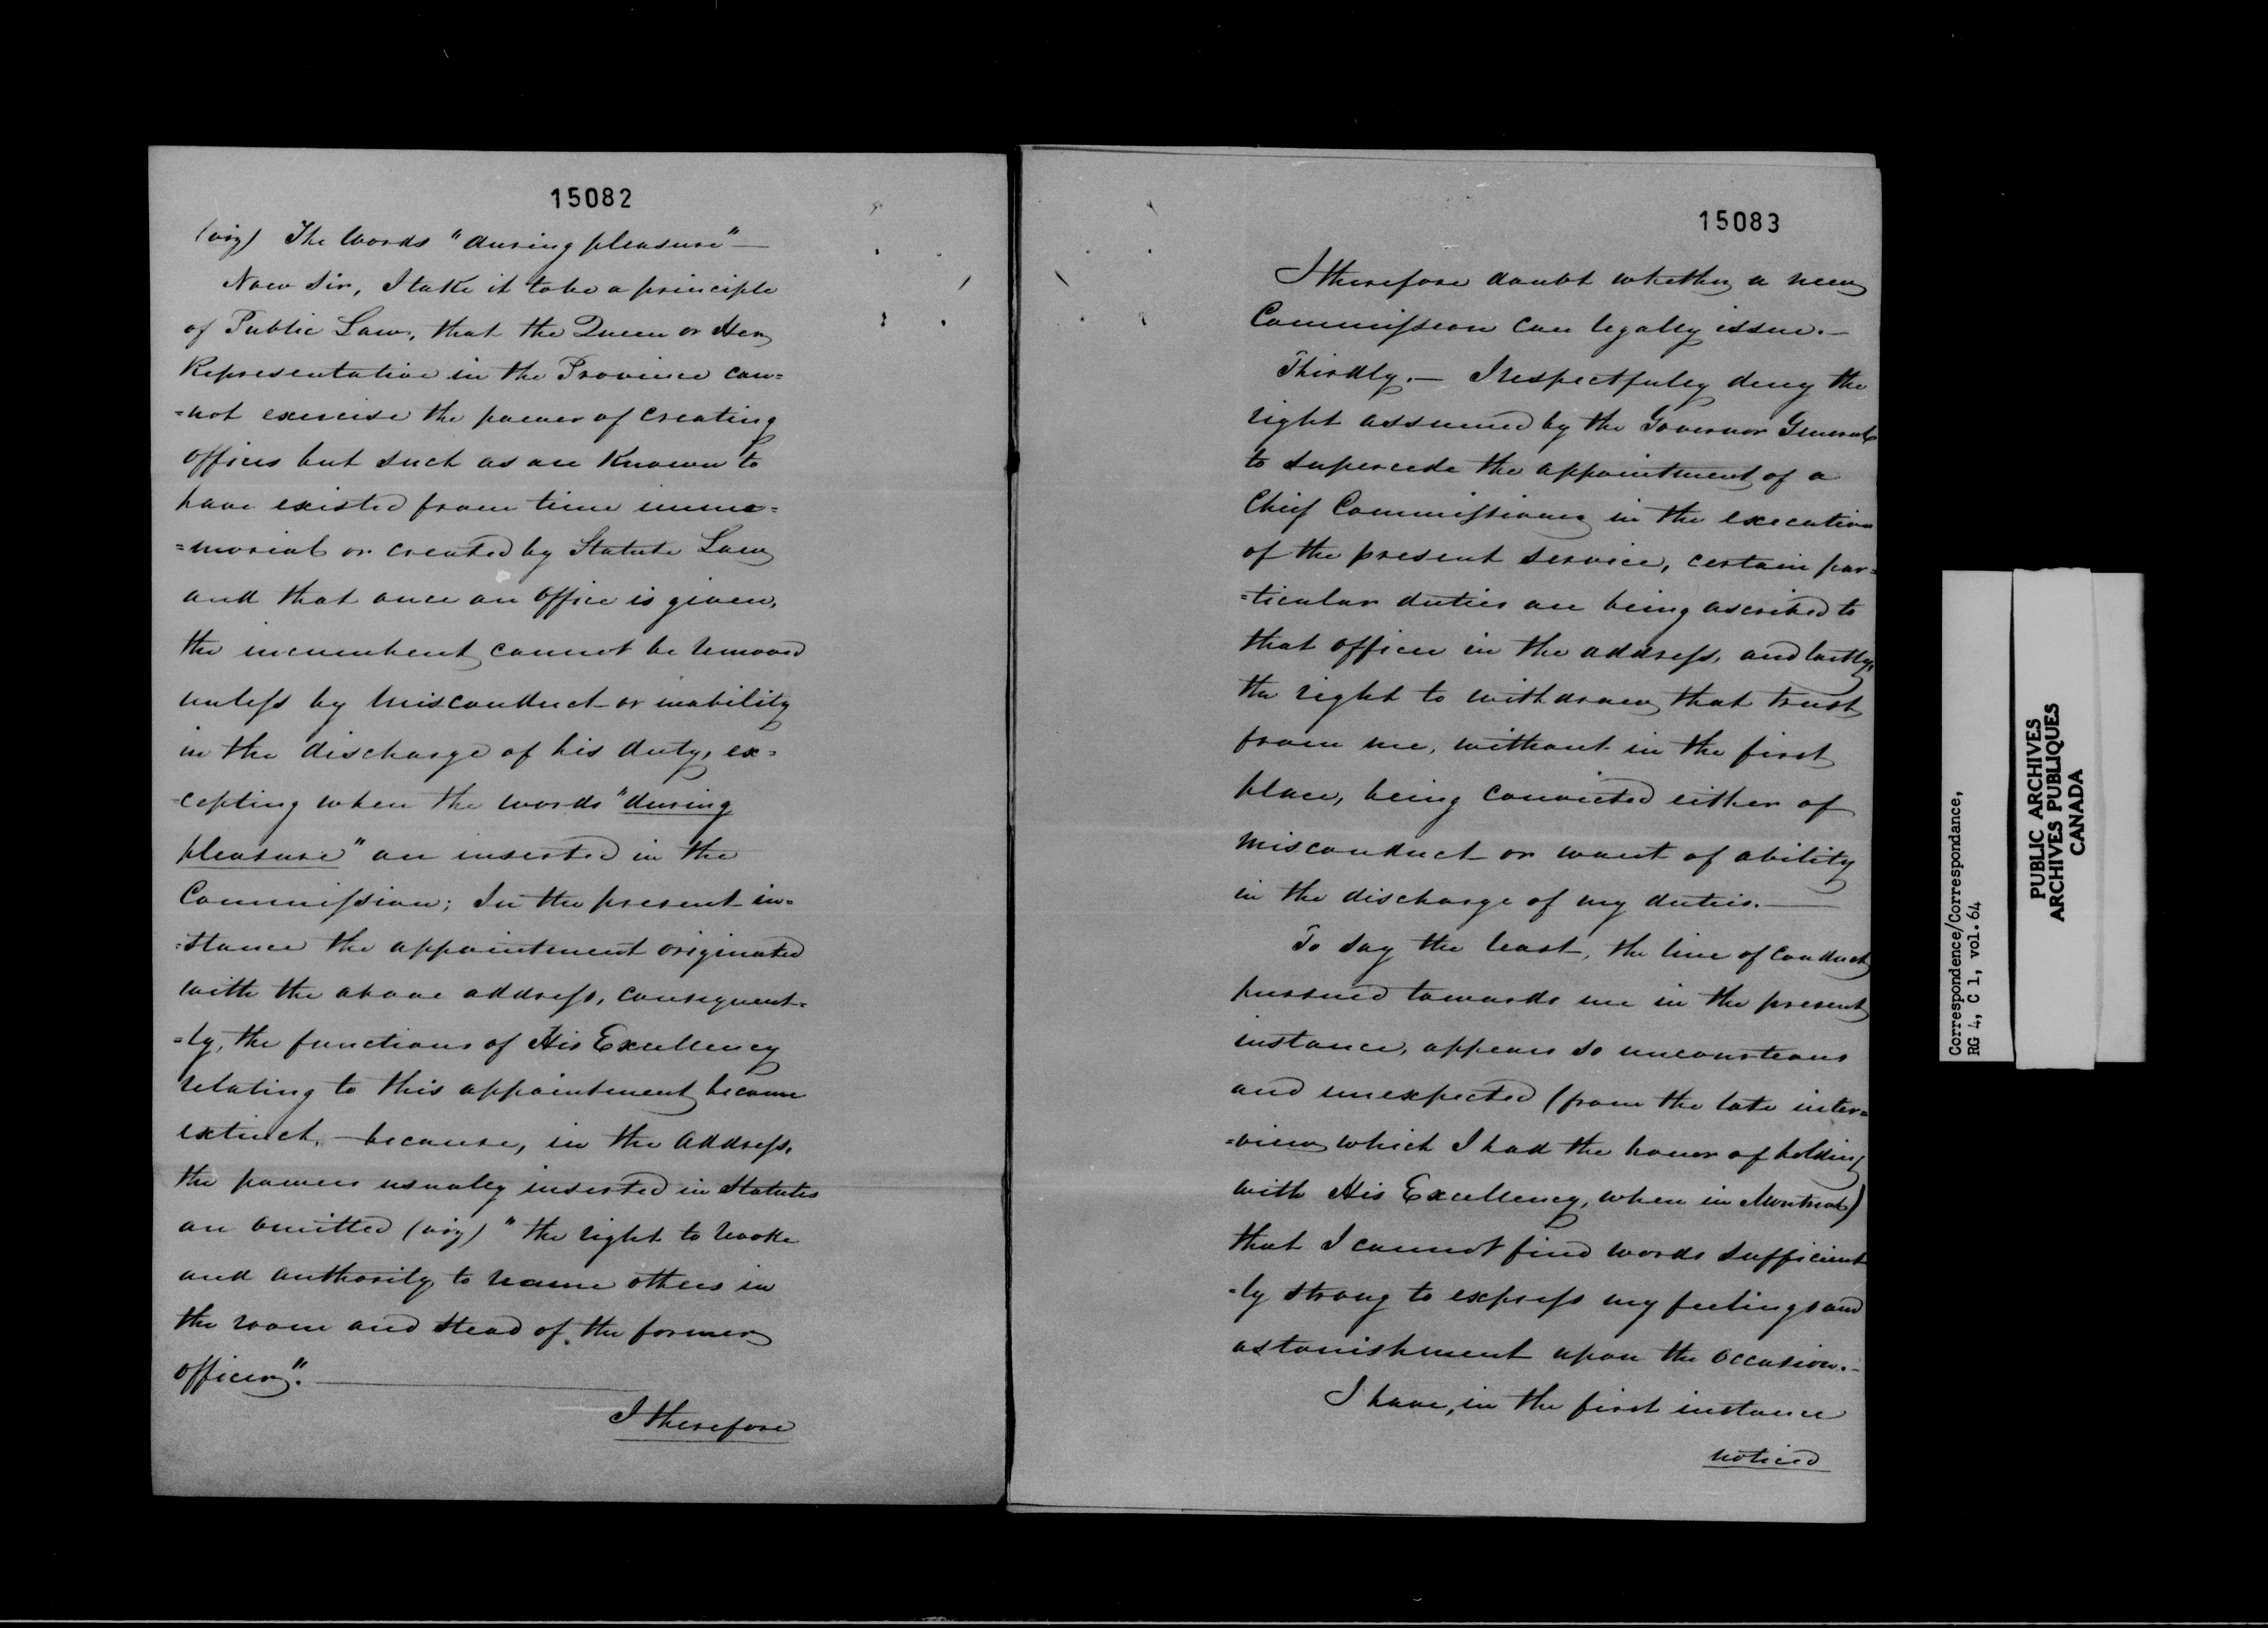 15082
(viz) The words "during pleasure"—
Now Sir, I take it to be a principle
of Public Law, that the Queen or Her
Representative in the Province can=
=not exercise the power of creating
offices but such as are known to
have existed from time imme=
=morial or created by Statute Law
and that once an office is given,
the incumbent cannot be removed
unless by misconduct or inability
in the discharge of his duty, ex=
=cepting when the words "during
pleasure" are inserted in the
Commission; In the present in=
=stance the appointment originated
with the above address, consequent=
=ly, the functions of His Excellency
relating to this appointment became
extinct, — because, in the address,
the powers usually inserted in Statutes
are omitted (viz) "the right to revoke
and authority to name others in
the room and stead of the former
officer".
I therefore
15083
I therefore doubt whether a new
Commission can legally issue.—
Thirdly.— I respectfully deny the
right assumed by the Governor General
to supercede the appointment of a
Chief Commissioner in the execution
of the present service, certain par=
=ticular duties are being ascribed to
that officer in the address, and lastly,
the right to withdraw that trust
from me, without in the first
place, being convicted either of
misconduct or want of ability
in the discharge of my duties.—
To say the least, the line of conduct
pursued towards me in the present
instance, appears so uncourteous
and unexpected (from the late inter=
=view which I had the honor of holding
with His Excellency, when in Montreal)
that I cannot find words sufficient
=ly strong to express my feelings and
astonishment upon the occasion.—
I have, in the first instance
noticed
Correspondence/Correspondance,
RG 4, C 1, vol. 64
PUBLIC ARCHIVES
ARCHIVES PUBLIQUES
CANADA